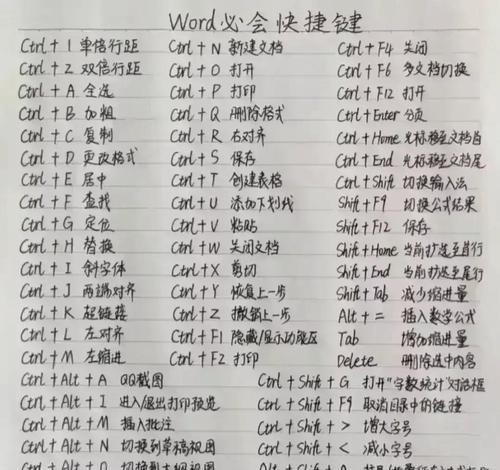 Word必会快捷键
Ctrl + 1 单倍行距
Ctrl + 2 双倍行距
Ctrl + A 全选
Ctrl + B 加粗
Ctrl + C 复制
Ctrl + D 更改格式
Ctrl + E 居中
Ctrl + F 查找
Ctrl + G 定位
Ctrl + H 替换
Ctrl + I 斜字体
Ctrl + J 两端对齐
Ctrl + K 超链接
Ctrl + L 左对齐
Ctrl + M 左缩进
Ctrl + N 新建文档
Ctrl + O 打开
Ctrl + P 打印
Ctrl + Q 删除格式
Ctrl + R 右对齐
Ctrl + S 保存
Ctrl + T 创建表格
Ctrl + U 添加下划线
Ctrl + V 粘贴
Ctrl + W 关闭文档
Ctrl + X 剪切
Ctrl + Y 恢复上一步
Ctrl + Z 撤销上一步
Ctrl + F1 隐藏/显示功能区
Ctrl + F2 打印
Ctrl + F4 关闭
Ctrl + F6 多文档切换
Ctrl + F12 打开
Ctrl + Enter 分页
Ctrl + Home 光标移至文档首
Ctrl + End 光标移至文档尾
Ctrl + Shift 切换输入法
Shift + F9 切换公式结果
Shift + F12 保存
Shift + Home 当前处选至首行
Shift + End 当前处选至尾行
Shift + Tab 减少缩进量
Alt + = 插入数学公式
Tab 增加缩进量
Delete 删除选中内容
Ctrl + Alt + A QQ截图
Ctrl + Alt + I 进入/退出打印预览
Ctrl + Alt + M 插入批注
Ctrl + Alt + N 切换到草稿视图
Ctrl + Alt + O 切换到大纲视图
Ctrl + Shift + G 打开"字数统计"对话框
Ctrl + Shift + F9 取消目录中的链接
Ctrl + Shift + > 增大字号
Ctrl + Shift + < 减小字号